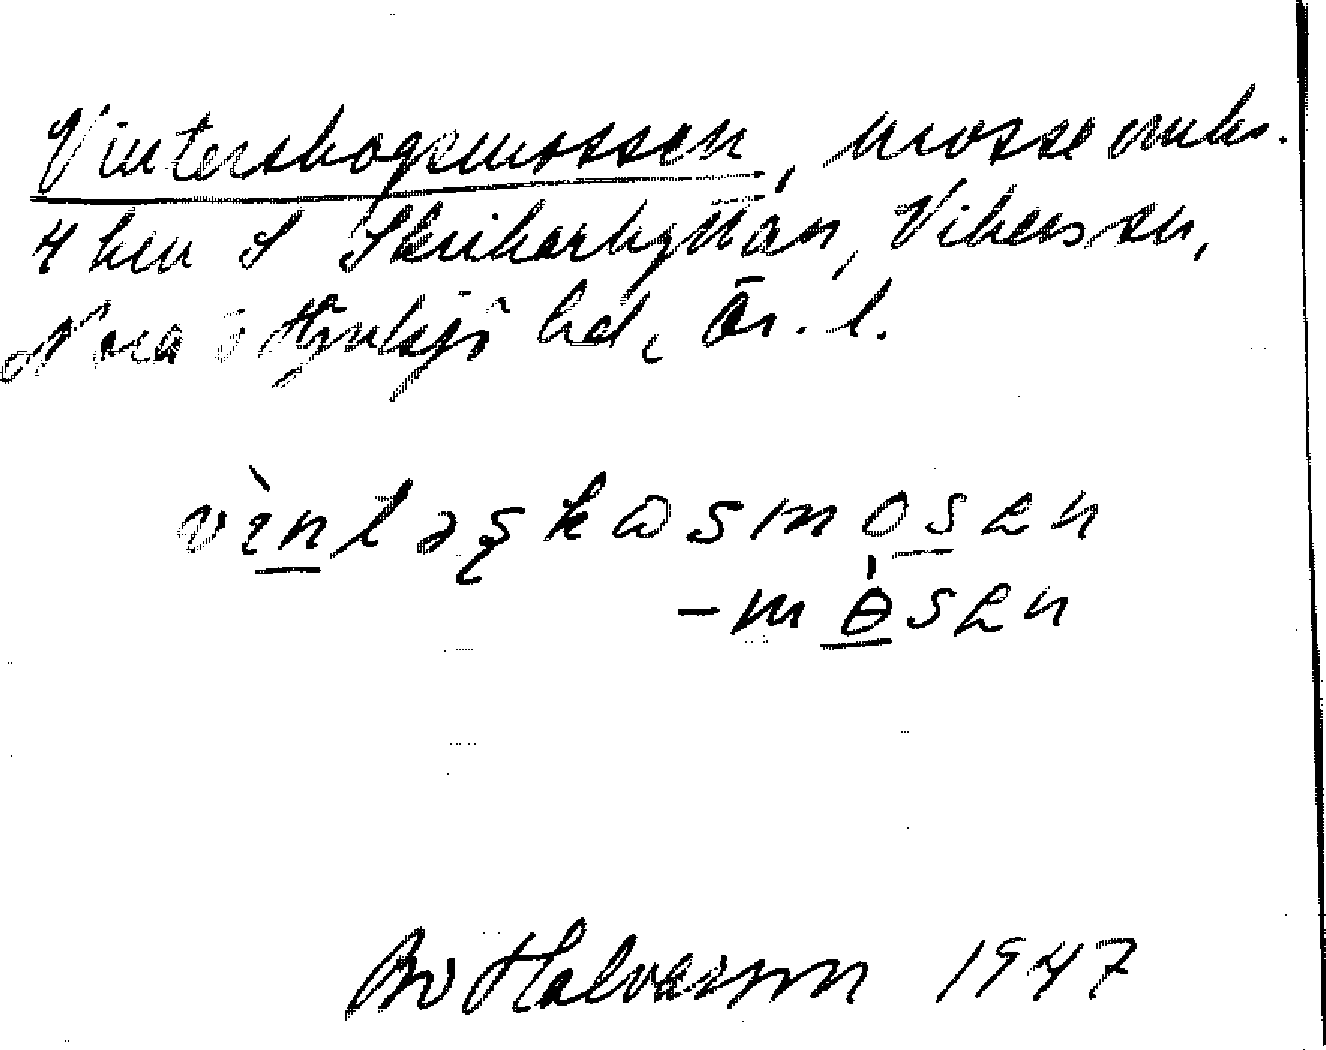 Vinterskogsmossen, mosse omkr.
4 km S Skrikarhyttan, Vikers sn,
Nora o Hjulsjö hd, Ör. l.
vìntəşkωsmosεn
-mɵ̀sεn
Bo Halvarson 1947